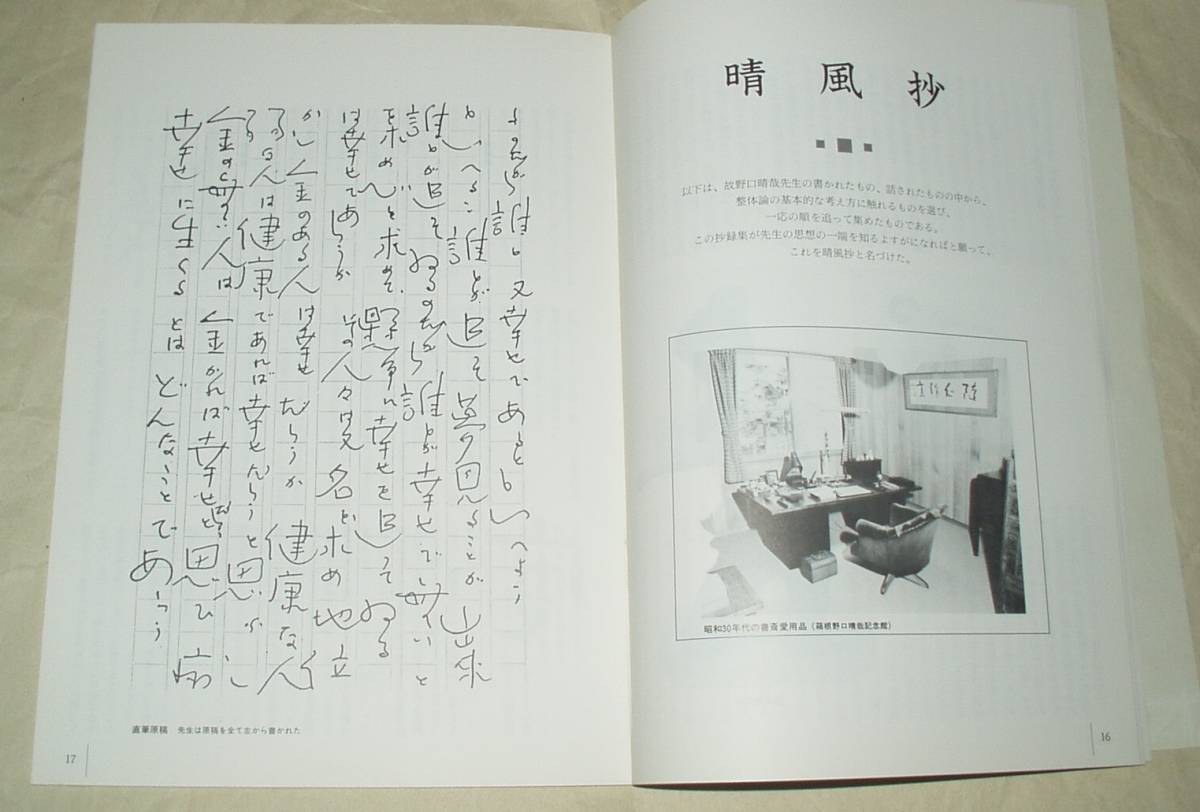 晴風抄
以下は、故野口晴哉先生の書かれたもの、話されたものの中から、
整体論の基本的な考え方に触れるものを選び、
一応の順を追って集めたものである。
この抄録集が先生の思想の一端を知るよすがになればと願って、
これを晴風抄と名づけた。
昭和30年代の書斎愛用品（箱根野口晴哉記念館）
16
幸せに生くるとはどんなことであらう
金の無い人は金があれば幸せだと思ひ病
ある人は健康であれば幸せだらうと思ふ し
かし金のある人は幸せだらうか 健康な人
は幸せであらうか その人々は又名を求め地位
を求め 求めて 懸命に幸せを追つてゐる
誰もが追つてゐるのだから誰もが幸せで無いと
もいへる 誰もが追 ことが出来
るのだから誰も又幸せであるともいへよう
直筆原稿 先生は原稿を全て左から書かれた
17